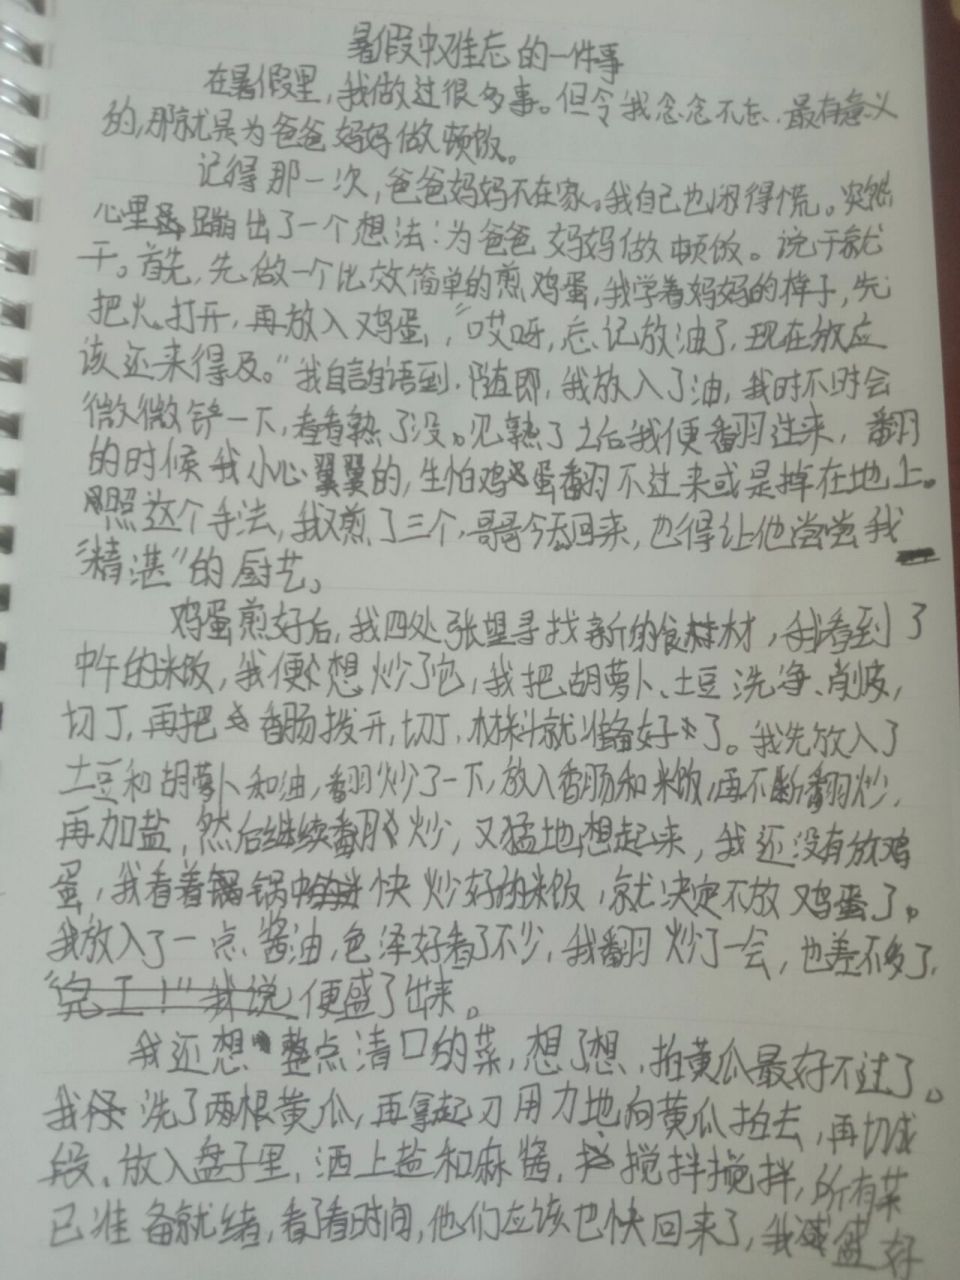 暑假中难忘的一件事
在暑假里,我做过很多事。但令我念念不忘、最有意义
的,那就是为爸爸妈妈做顿饭。
记得那一次,爸爸妈妈不在家。我自己也闲得慌。突然
心里蹦出了一个想法:为爸爸妈妈做顿饭。说干就
干。首先,先做一个比较简单的煎鸡蛋,我学着妈妈的样子,先
把火打开,再放入鸡蛋,“哎呀,忘记放油了,现在放应
该还来得及。”我自言自语到.随即,我放入了油,我时不时会
微微铲一下,看看熟了没。见熟了之后我便翻过来,翻
的时候我小心翼翼的,生怕鸡蛋翻不过来或是掉在地上。
照这个手法,我又煎了三个,哥哥今天回来,也得让他尝尝我
“精湛”的厨艺。
鸡蛋煎好后,我四处张望寻找新的食材,我看到了
中午的米饭,我便想炒了它,我把胡萝卜、土豆洗净、削皮,
切丁,再把香肠拨开,切丁,材料就准备好了。我先放入了
土豆和胡萝卜和油,翻炒了一下,放入香肠和米饭,再不断翻炒,
再加盐,然后继续翻炒,又猛地想起来,我还没有放鸡
蛋,我看着锅中快炒好的米饭,就决定不放鸡蛋了。
我放入了一点酱油,色泽好看了不少,我翻炒了一会,也差不多了,
“完工!”我说,便盛了出来。
我还想整点清口的菜,想了想,拍黄瓜最好不过了。
我洗了两根黄瓜,再拿起刀用力地向黄瓜拍去,再切成
段,放入盘子里,洒上盐和麻酱,搅拌搅拌,所有菜
已准备就绪,看了看时间,他们应该也快回来了,我盛好